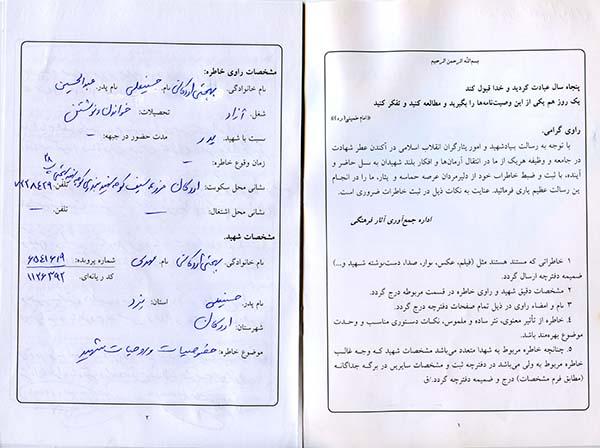 بسم‌الله الرحمن الرحیم
پنجاه سال عبادت کردید و خدا قبول کند
یک روز هم یکی از این وصیت‌نامه‌ها را بگیرید و مطالعه کنید و تفکر کنید
(امام خمینی(ره))
راوی گرامی،
با توجه به رسالت بنیادشهید و امور ایثارگران انقلاب اسلامی در آکندن عطر شهادت
در جامعه و وظیفه هریک از ما در انتقال آرمان‌ها و افکار بلند شهیدان به نسل حاضر و
آینده، با ثبت و ضبط خاطرات خود از دلیرمردان عرصه حماسه و ایثار، ما را در انجام
این رسالت عظیم یاری فرمائید. عنایت به نکات ذیل در ثبت خاطرات ضروری است.
اداره جمع‌آوری آثار فرهنگی
۱ خاطراتی که مستند هستند مثل (فیلم، عکس، نوار، صدا، دست‌نوشته شهید و...)
ضمیمه دفترچه ارسال گردد.
۲ مشخصات دقیق شهید و راوی خاطره در قسمت مربوطه درج گردد.
۳ نام و امضاء راوی در ذیل تمام صفحات دفترچه درج گردد.
۴ خاطره از تأثیر معنوی، نثر ساده و ملموس، نکات دستوری مناسب و وحدت
موضوع بهره‌مند باشد.
۵ چنانچه خاطره مربوط به شهدا متعدد می‌باشد مشخصات شهید که وجه غالب
خاطره مربوط به ولی می‌باشد در دفترچه ثبت و مشخصات سایرین در برگه جداگانه
(مطابق فرم مشخصات) درج و ضمیمه دفترچه گردد./ق
۱
مشخصات راوی خاطره:
نام خانوادگی: بهجتی اردکانی نام: حسینعلی نام پدر: عبدالحسین
شغل: آزاد تحصیلات: خواندن و نوشتن
نسبت با شهید: پدر مدت حضور در جبهه: –
زمان وقوع خاطره: –
نشانی محل سکونت: اردکان تلفن: ۷۲۲۸۴۲۹
نشانی محل اشتغال: – تلفن: –
مشخصات شهید:
نام خانوادگی: بهجتی اردکانی نام: مهدی شماره پرونده: ۶۵۴۱۶۱۹
کد رایانه‌ای: ۱۱۲۶۳۹۲
نام پدر: حسینعلی استان: یزد
شهرستان: اردکان
موضوع خاطره: خصوصیات و روحیات شهید
۲